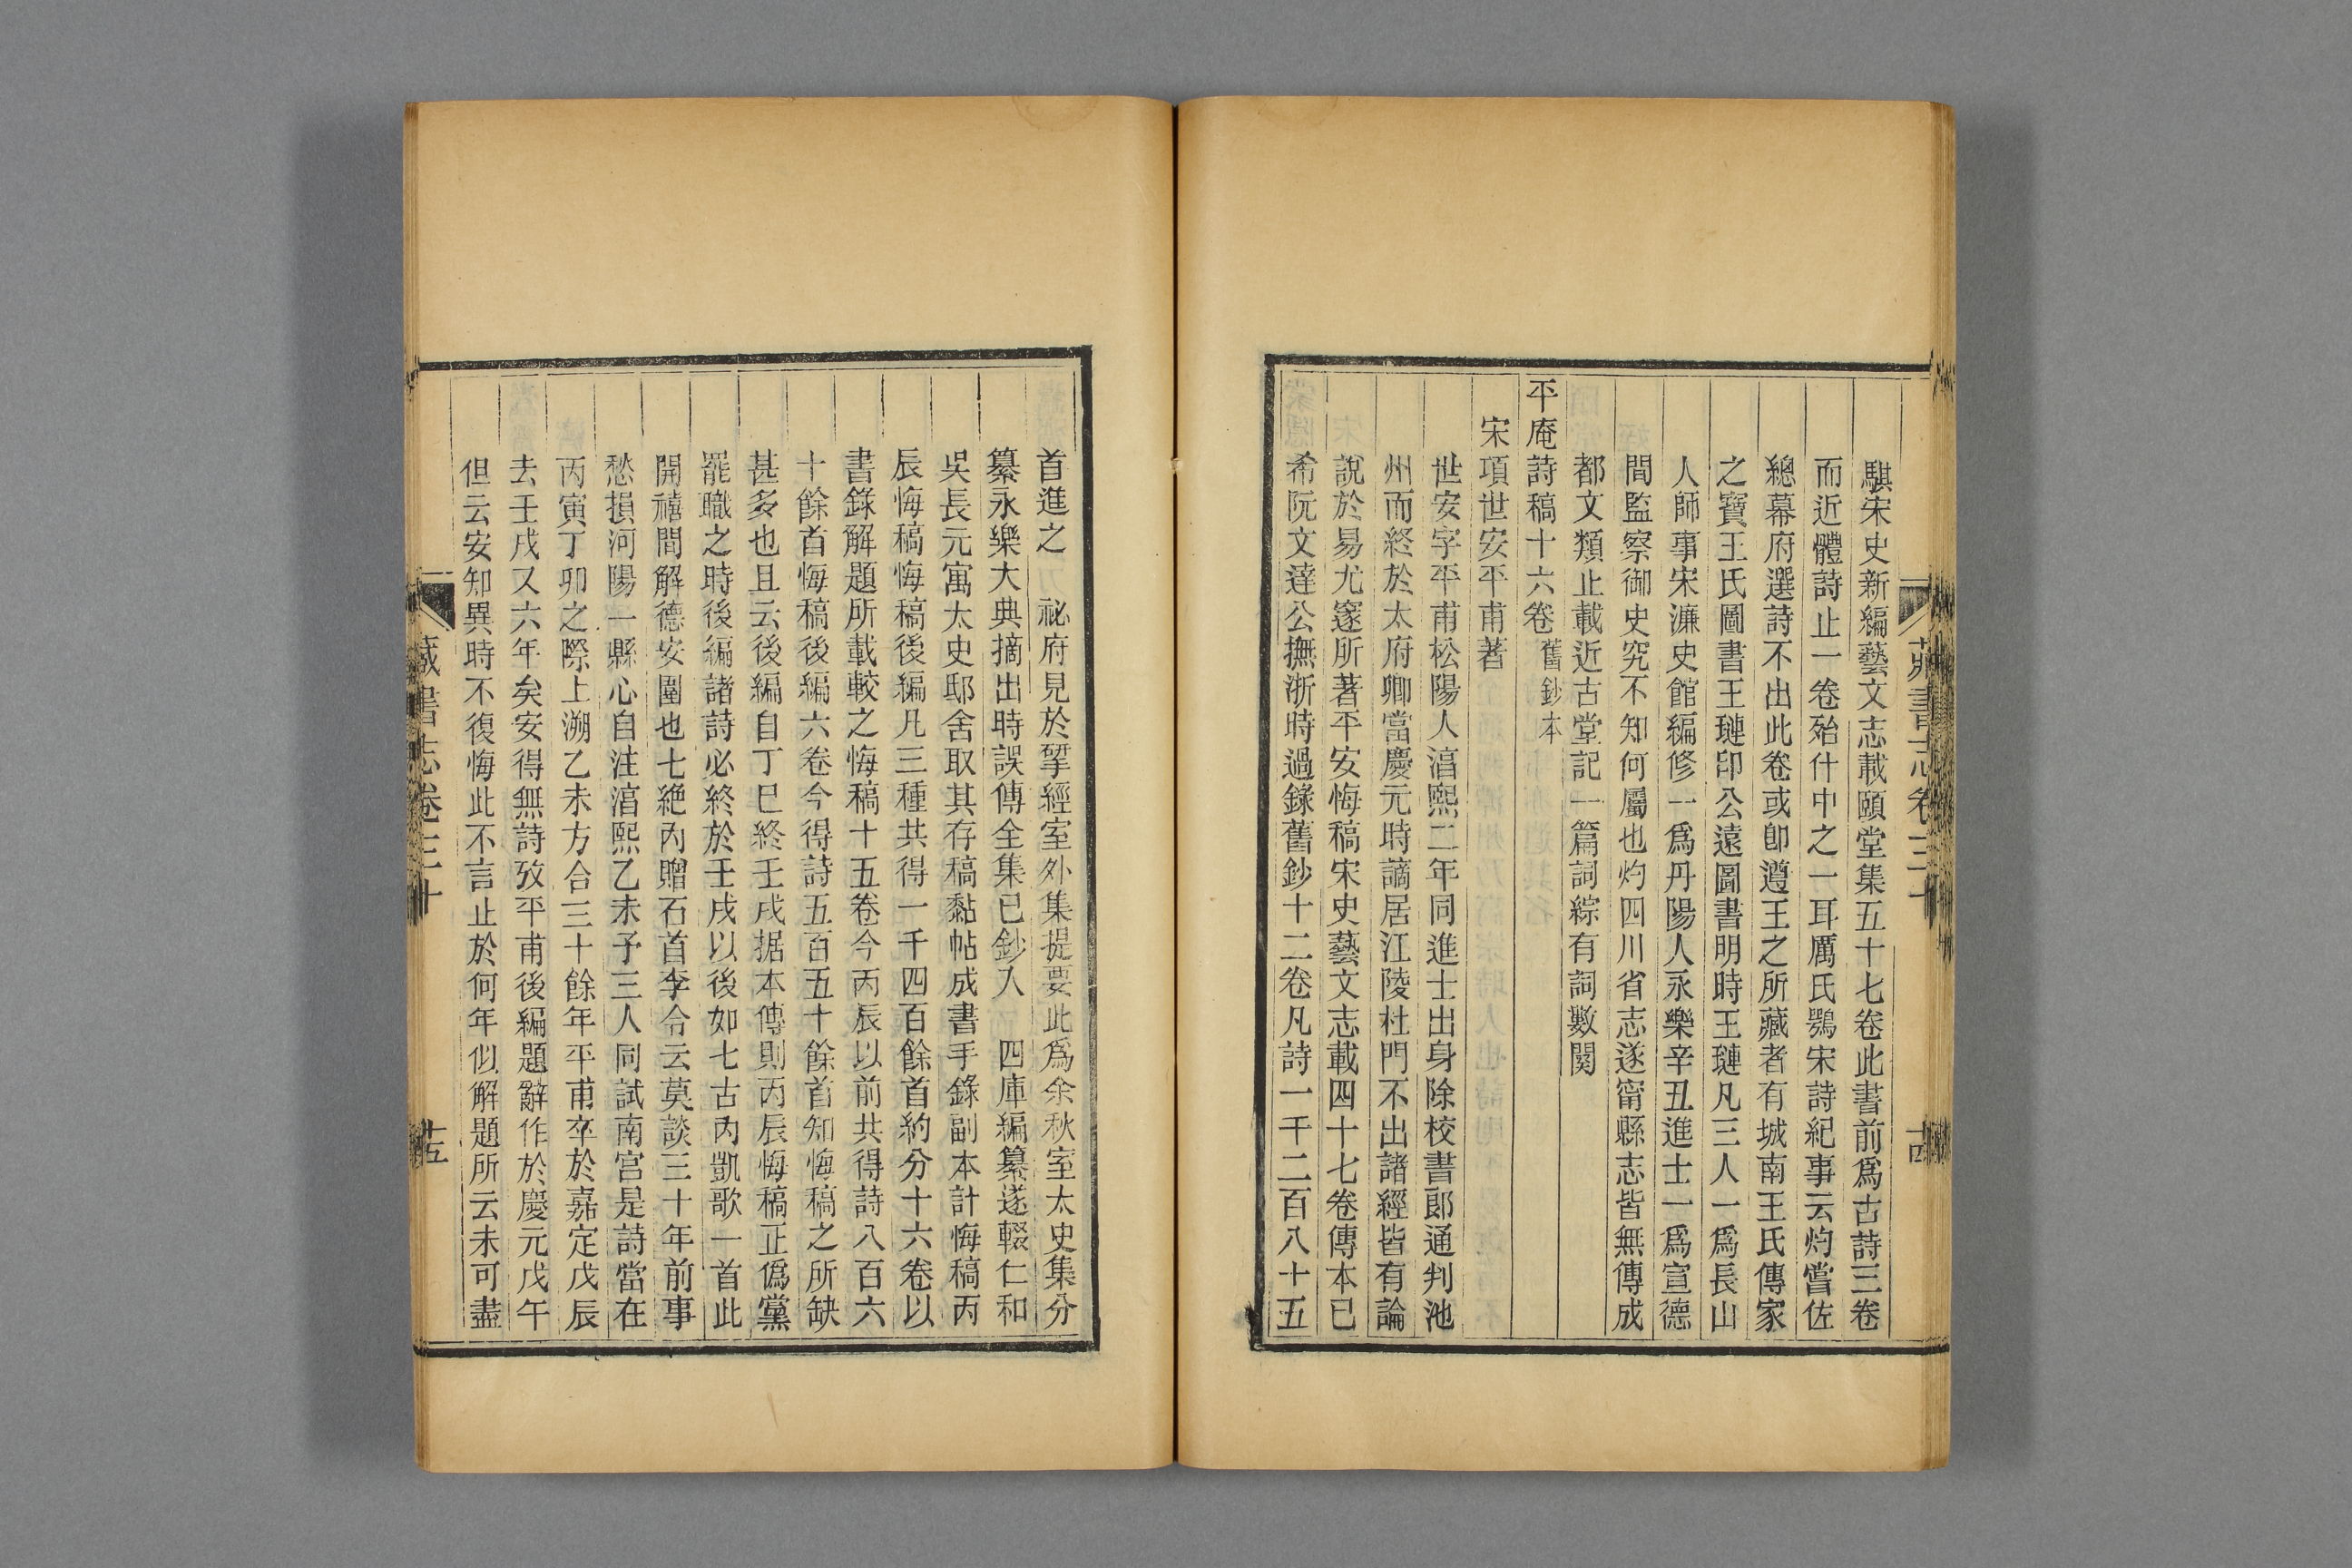 騏宋史新編藝文志載頤堂集五十七卷此書前爲古詩三卷
而近體詩止一卷殆什中之一耳厲氏鶚宋詩紀事云灼嘗佐
總幕府選詩不出此卷或卽遵王之所藏者有城南王氏傳家
之寶王氏圖書王璉印公遠圖書明時王璉凡三人一爲長山
人師事宋濂史館編修一爲丹陽人永樂辛丑進士一爲宣德
間監察御史究不知何屬也灼四川省志遂甯縣志皆無傳成
都文類止載近古堂記一篇詞綜有詞數闋
平庵詩稿十六卷 舊鈔本
宋項世安平甫著
世安字平甫松陽人淳熙二年同進士出身除校書郞通判池
州而終於太府卿當慶元時謫居江陵杜門不出諸經皆有論
說於易尤邃所著平安悔稿宋史藝文志載四十七卷傳本已
希阮文達公撫浙時過錄舊鈔十二卷凡詩一千二百八十五
藏書志卷三十 十四
首進之 祕府見於揅經室外集提要此爲余秋室太史集分
纂永樂大典摘出時誤傳全集已鈔入 四庫編纂遂輟仁和
吳長元寓太史邸舍取其存稿黏帖成書手錄副本計悔稿丙
辰悔稿悔稿後編凡三種共得一千四百餘首約分十六卷以
書錄解題所載較之悔稿十五卷今丙辰以前共得詩八百六
十餘首悔稿後編六卷今得詩五百五十餘首知悔稿之所缺
甚多也且云後編自丁巳終壬戌据本傳則丙辰悔稿正僞黨
罷職之時後編諸詩必終於壬戌以後如七古內凱歌一首此
開禧間解德安圍也七絕內贈石首李令云莫談三十年前事
愁損河陽一縣心自注淳熙乙未予三人同試南宮是詩當在
丙寅丁卯之際上溯乙未方合三十餘年平甫卒於嘉定戊辰
去壬戌又六年矣安得無詩攷平甫後編題辭作於慶元戊午
但云安知異時不復悔此不言止於何年似解題所云未可盡
藏書志卷三十 十五